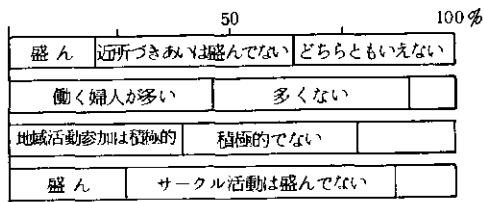 50 100%
盛ん 近所づきあいは盛んでない どちらともいえない
働く婦人が多い 多くない
地域活動参加は積極的 積極的でない
盛ん サークル活動は盛んでない